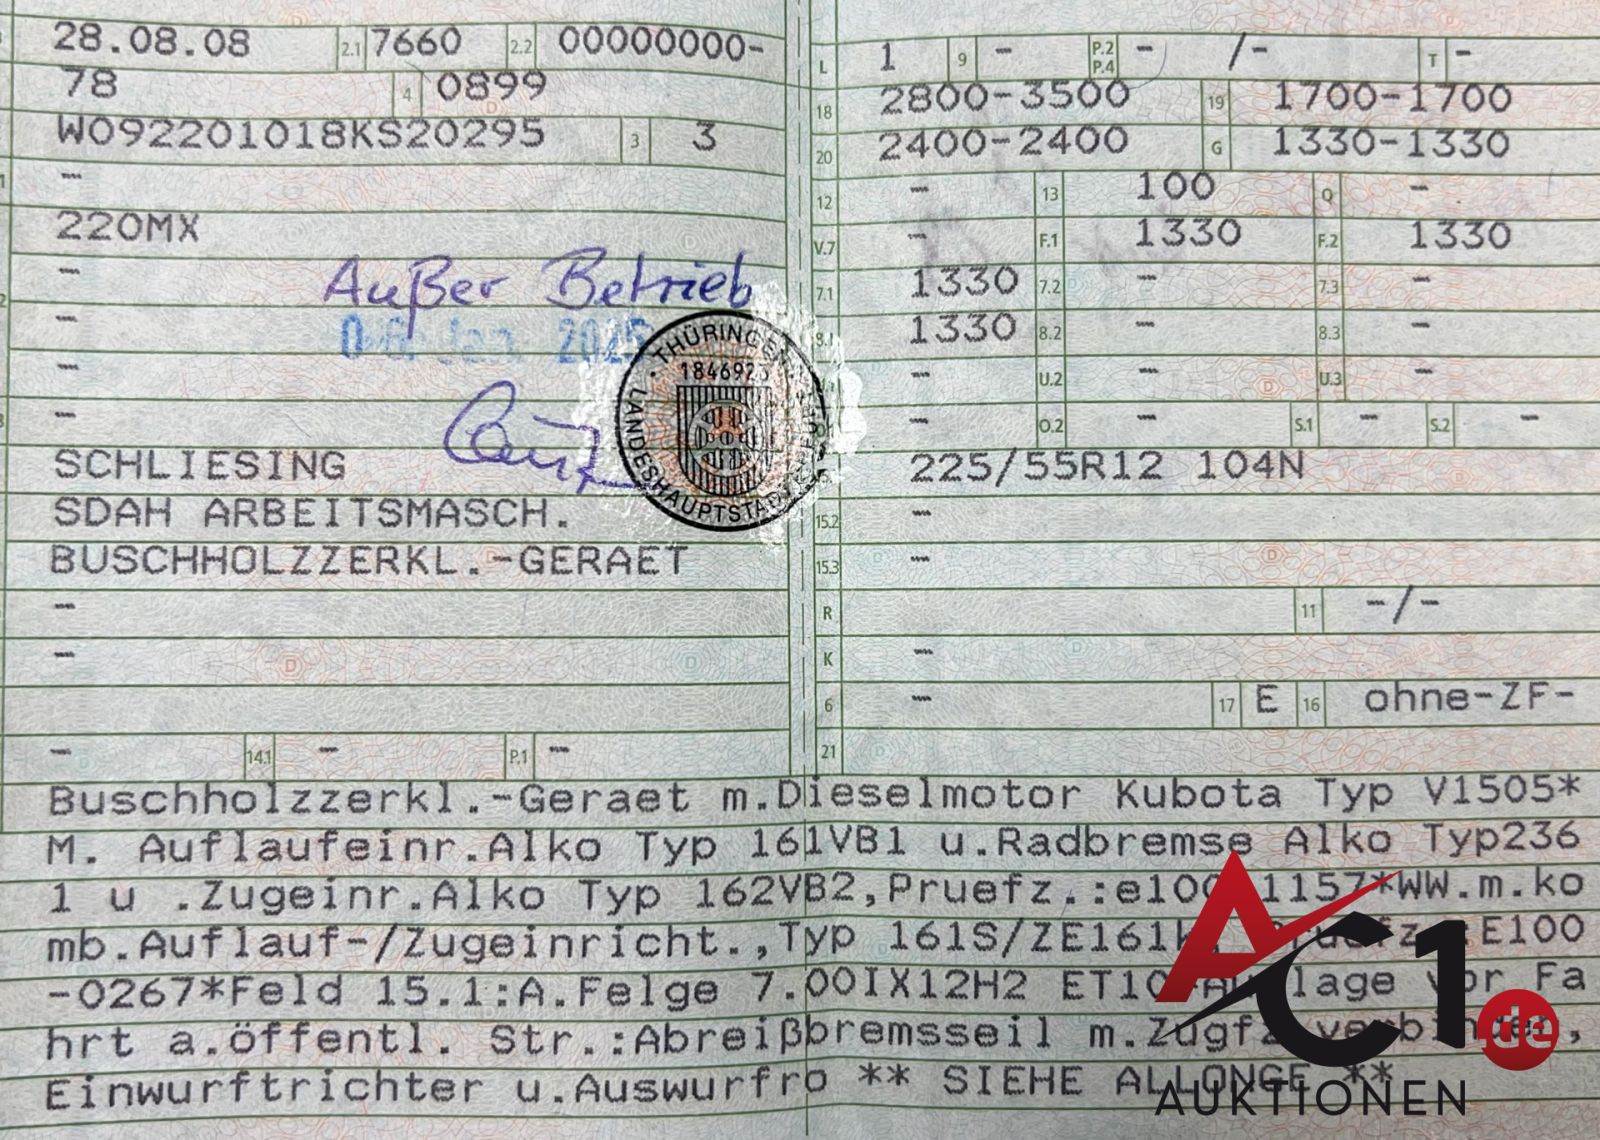 28.08.08 2.1 7660 2.2 00000000-
78 4 0899
W092201018KS20295 3 3
-
220MX
-
Außer Betrieb
-
06. Jan. 2025
-
-
THÜRINGEN
LANDESHAUPTSTADT
SCHLIESING
SDAH ARBEITSMASCH.
BUSCHHOLZZERKL.-GERAET
-
-
- 14.1 - P.1 -
L 1 9 - P.2 P.4 - /- T -
18 2800-3500 19 1700-1700
20 2400-2400 G 1330-1330
12 - 13 100 Q -
V.7 - F.1 1330 F.2 1330
7.1 1330 7.2 - 7.3 -
8.1 1330 8.2 - 8.3 -
- U.2 - U.3 -
- O.2 - S.1 - S.2 -
225/55R12 104N
15.2 -
15.3 -
R 11 -/-
K -
6 - 17 E 16 ohne-ZF-
21
Buschholzzerkl.-Geraet m.Dieselmotor Kubota Typ V1505*
M. Auflaufeinr.Alko Typ 161VB1 u.Radbremse Alko Typ236
1 u .Zugeinr.Alko Typ 162VB2,Pruefz.:e100 1157*WW.m.ko
mb.Auflauf-/Zugeinricht.,Typ 161S/ZE161 Pruefz.:E100
-0267*Feld 15.1:A.Felge 7.00IX12H2 ET10 Auflage vor Fa
hrt a.öffentl. Str.:Abreißbremsseil m.Zugfz verbinden,
Einwurftrichter u.Auswurfro ** SIEHE ALLONGE **
AC1.de
AUKTIONEN